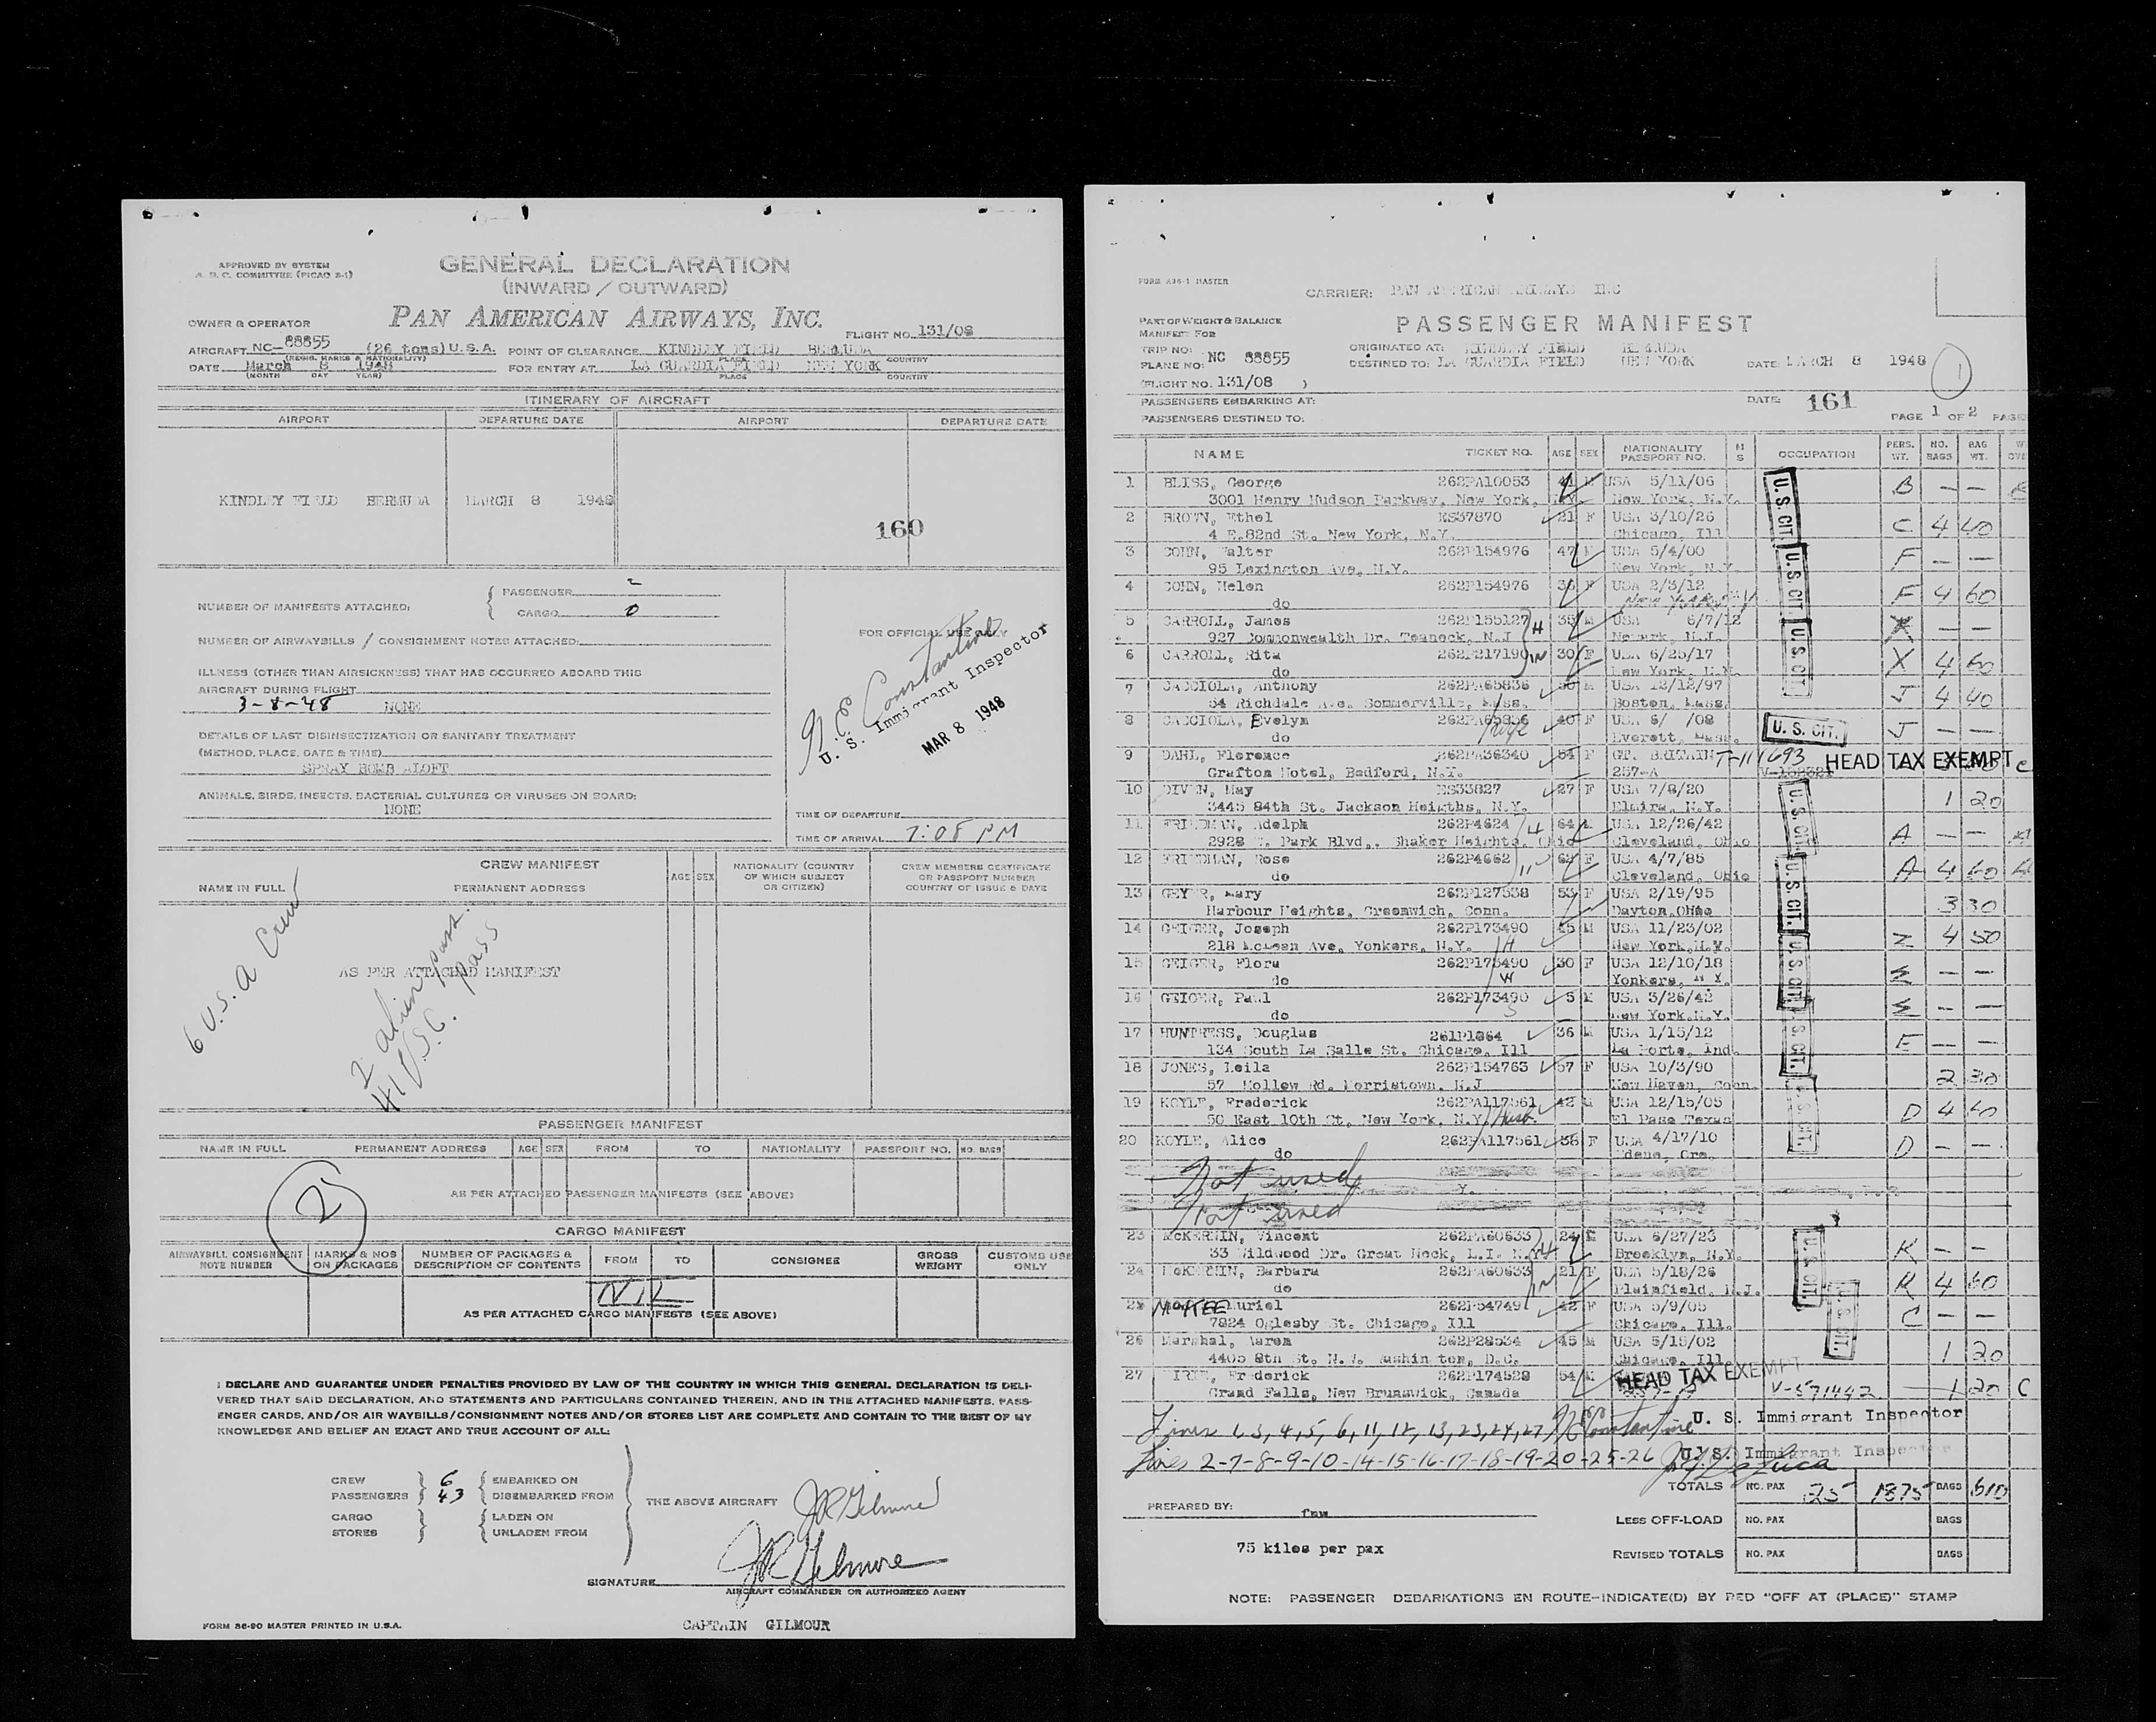 APPROVED BY SYSTEM
A. D. C. COMMITTEE (PICAO 2-1)
GENERAL DECLARATION
(INWARD / OUTWARD)
PAN AMERICAN AIRWAYS, INC.
OWNER & OPERATOR
FLIGHT NO. 131/08
AIRCRAFT NC-88855 (26 tons) U.S.A. POINT OF CLEARANCE KINDLEY FIELD BERMUDA
(REGIS. MARKS & NATIONALITY) PLACE COUNTRY
DATE March 8 1948 FOR ENTRY AT LA GUARDIA FIELD NEW YORK
(MONTH DAY YEAR) PLACE COUNTRY
ITINERARY OF AIRCRAFT
AIRPORT DEPARTURE DATE AIRPORT DEPARTURE DATE
KINDLEY FIELD BERMUDA MARCH 8 1948
160
NUMBER OF MANIFESTS ATTACHED: PASSENGER 2
CARGO 0
NUMBER OF AIRWAYBILLS / CONSIGNMENT NOTES ATTACHED:
ILLNESS (OTHER THAN AIRSICKNESS) THAT HAS OCCURRED ABOARD THIS
AIRCRAFT DURING FLIGHT
3-8-48 NONE
DETAILS OF LAST DISINSECTIZATION OR SANITARY TREATMENT
(METHOD, PLACE, DATE & TIME)
SPRAY BOMB ALOFT
ANIMALS, BIRDS, INSECTS, BACTERIAL CULTURES OR VIRUSES ON BOARD:
NONE
FOR OFFICIAL USE ONLY
Constantine
U. S. Immigrant Inspector
MAR 8 1948
TIME OF DEPARTURE
TIME OF ARRIVAL 7:08 PM
CREW MANIFEST
NAME IN FULL PERMANENT ADDRESS AGE SEX NATIONALITY (COUNTRY OF WHICH SUBJECT OR CITIZEN) CREW MEMBERS CERTIFICATE OR PASSPORT NUMBER COUNTRY OF ISSUE & DATE
AS PER ATTACHED MANIFEST
6 U.S.A Crew
2 alien pass.
41 U.S.C. pass
PASSENGER MANIFEST
NAME IN FULL PERMANENT ADDRESS AGE SEX FROM TO NATIONALITY PASSPORT NO. NO. BAGS
2
AS PER ATTACHED PASSENGER MANIFESTS (SEE ABOVE)
CARGO MANIFEST
AIRWAYBILL CONSIGNMENT NOTE NUMBER MARKS & NOS ON PACKAGES NUMBER OF PACKAGES & DESCRIPTION OF CONTENTS FROM TO CONSIGNEE GROSS WEIGHT CUSTOMS USE ONLY
NIL
AS PER ATTACHED CARGO MANIFESTS (SEE ABOVE)
I DECLARE AND GUARANTEE UNDER PENALTIES PROVIDED BY LAW OF THE COUNTRY IN WHICH THIS GENERAL DECLARATION IS DELI-
VERED THAT SAID DECLARATION, AND STATEMENTS AND PARTICULARS CONTAINED THEREIN, AND IN THE ATTACHED MANIFESTS, PASS-
ENGER CARDS, AND/OR AIR WAYBILLS/CONSIGNMENT NOTES AND/OR STORES LIST ARE COMPLETE AND CONTAIN TO THE BEST OF MY
KNOWLEDGE AND BELIEF AN EXACT AND TRUE ACCOUNT OF ALL:
CREW 6 EMBARKED ON
PASSENGERS 43 DISEMBARKED FROM
THE ABOVE AIRCRAFT JR Gilmour
CARGO LADEN ON
STORES UNLADEN FROM
SIGNATURE JR Gilmour
AIRCRAFT COMMANDER OR AUTHORIZED AGENT
FORM 86-90 MASTER PRINTED IN U.S.A.
CAPTAIN GILMOUR
FORM A86-1 MASTER
CARRIER: PAN AMERICAN AIRWAYS INC
PART OF WEIGHT & BALANCE
MANIFEST FOR
PASSENGER MANIFEST
TRIP NO:
PLANE NO: NC 88855
ORIGINATED AT: KINDLEY FIELD BERMUDA
DESTINED TO: LA GUARDIA FIELD NEW YORK
DATE: MARCH 8 1948
1
(FLIGHT NO. 131/08 )
PASSENGERS EMBARKING AT:
DATE: 161
PASSENGERS DESTINED TO:
PAGE 1 OF 2 PAGE
NAME TICKET NO. AGE SEX NATIONALITY PASSPORT NO. M S OCCUPATION PERS. WT. NO. BAGS BAG WT.
1 BLISS, George 262PA10053 41 M USA 5/11/06 B — —
3001 Henry Hudson Parkway, New York, N.Y. New York, N.Y.
2 BROWN, Ethel ES37870 21 F USA 3/10/26 C 4 40
4 E.82nd St. New York, N.Y. Chicago, Ill
3 COHN, Walter 262P154976 47 M USA 5/4/00 F — —
95 Lexington Ave, N.Y. New York, N.Y.
4 COHN, Helen 262P154976 36 F USA 2/3/12 F 4 60
do NEW YORK NY
5 CARROLL, James 262P155127 H 35 M USA 6/7/12 X — —
927 Commonwealth Dr. Teaneck, N.J Newark, N.J.
6 CARROLL, Rita 262P217190 W 30 F USA 6/25/17 X 4 60
do New York, N.Y.
7 CACCIOLA, Anthony 262PA65836 50 M USA 12/12/97 J 4 40
54 Richdale Ave. Sommerville, Mass. Boston, Mass.
8 CACCIOLA, Evelyn 262PA65836 40 F USA 6/ /08 J — —
do Wife Everett, Mass.
9 DAHL, Florence 262PA36340 54 F GT. BRITAIN T-111693 HEAD TAX EXEMPT C
Grafton Hotel, Bedford, N.Y. 257-A
10 DIVEN, May ES33827 27 F USA 7/8/20 1 20
3445 84th St. Jackson Heigths, N.Y. Elmira, N.Y.
11 FRIEDMAN, Adolph 262P4624 H 64 M USA 12/26/42 A — —
2928 W. Park Blvd,. Shaker Heights, Ohio Cleveland, Ohio
12 FRIEDMAN, Rose 262P4662 62 F USA 4/7/85 A 4 60
do Cleveland, Ohio
13 GEYER, Mary 262P127538 53 F USA 2/19/95 3 30
Harbour Heights, Greenwich, Conn. Dayton, Ohio
14 GEIGER, Joseph 262P173490 45 M USA 11/23/02 Z 4 50
218 McLean Ave, Yonkers, N.Y. H New York, N.Y.
15 GEIGER, Flora 262P173490 30 F USA 12/10/18 — —
do W Yonkers, N Y.
16 GEIGER, Paul 262P173490 5 M USA 3/26/42 — —
do S New York, N.Y.
17 HUNTRESS, Douglas 261P1864 36 M USA 1/15/12 E — —
134 South La Salle St. Chicago, Ill La Porte, Ind.
18 JONES, Leila 262P154763 57 F USA 10/3/90 2 30
57 Hollow Rd. Morristown. N.J New Haven, Conn.
19 KOYLE, Frederick 262PA117561 42 M USA 12/15/05 D 4 60
50 East 10th St, New York, N.Y. Husb. El Paso Texas
20 KOYLE, Alice 262PA117561 38 F USA 4/17/10 D — —
do
Not used
Not used
23 McKERNIN, Vincent 262PA60633 H 24 M USA 6/27/23 K — —
33 Wildwood Dr. Great Neck, L.I. N.Y. Brooklyn, N.Y.
24 McKERNIN, Barbara 262PA60633 W 21 F USA 5/18/26 K 4 60
do Plainfield, N.J.
25 Muriel 262P54749 42 F USA 5/9/05 C — —
7824 Oglesby St. Chicago, Ill Chicago, Ill.
26 Marshal, Waren 262P28534 45 M USA 5/15/02 1 20
4405 8th St. N.W. Washington, D.C. Chicago, Ill
27 PIRIE, Frederick 262P174528 54 M HEAD TAX EXEMPT
Grand Falls, New Brunswick, Canada V-571442 1 20 C
U.S. CIT.
U.S. CIT.
U.S. CIT.
U. S. CIT.
U.S. CIT.
U.S. CIT.
U.S. CIT.
U.S. CIT.
Lines 1,3,4,5,6,11,12,13,23,24,27 Constantine U. S. Immigrant Inspector
Lines 2-7-8-9-10-14-15-16-17-18-19-20-25-26 DeLuca U. S. Immigrant Inspector
TOTALS NO. PAX 25 1875 BAGS 610
PREPARED BY: fnw
LESS OFF-LOAD NO. PAX BAGS
75 kilos per pax
REVISED TOTALS NO. PAX BAGS
NOTE: PASSENGER DEDARKATIONS EN ROUTE-INDICATE(D) BY RED "OFF AT (PLACE)" STAMP